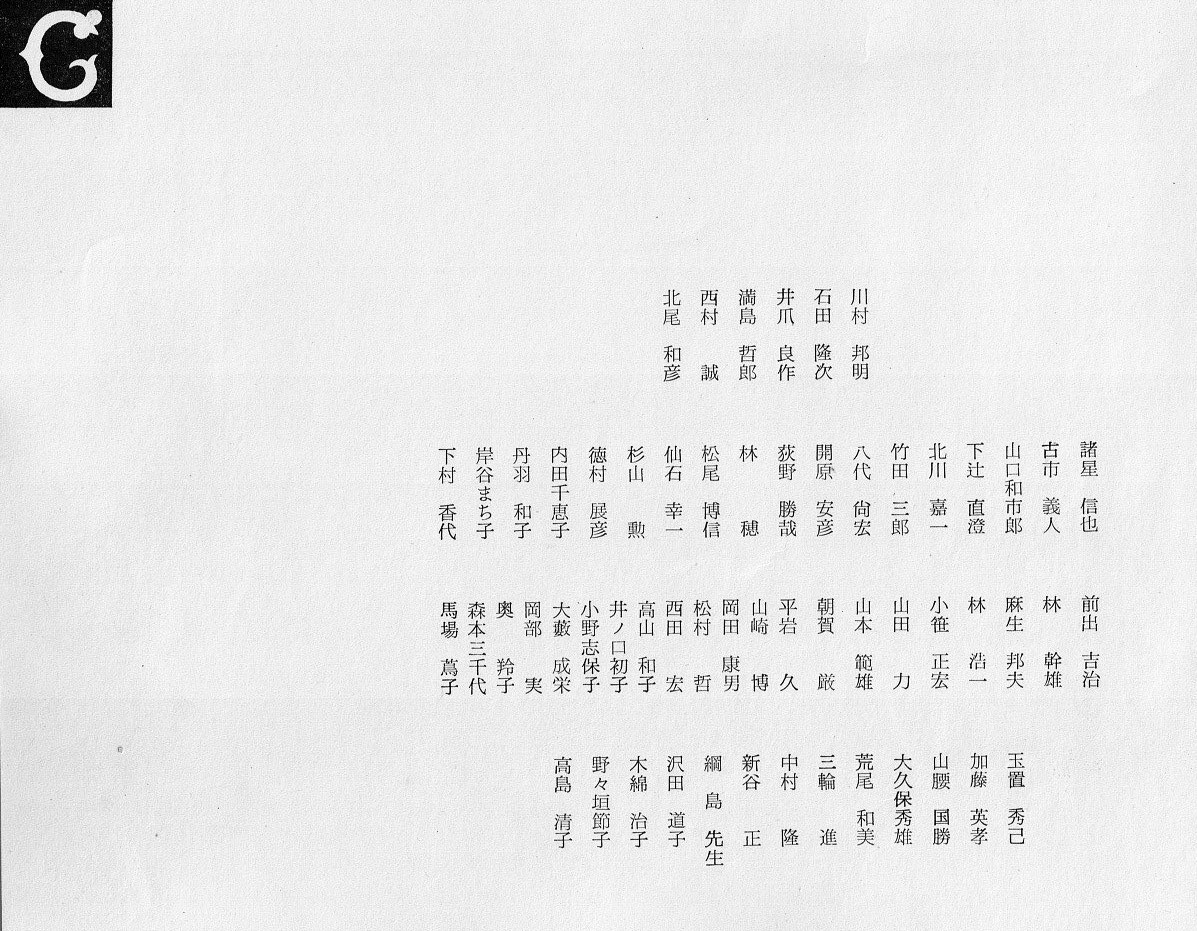 G
川村 邦明
石田 隆次
井爪 良作
満島 哲郎
西村 誠
北尾 和彦
諸星 信也
古市 義人
山口和市郎
下辻 直澄
北川 嘉一
竹田 三郎
八代 尚宏
開原 安彦
荻野 勝哉
林 穂
松尾 博信
仙石 幸一
杉山 勲
徳村 展彦
内田千恵子
丹羽 和子
岸谷まち子
下村 香代
前出 吉治
林 幹雄
麻生 邦夫
林 浩一
小笹 正宏
山田 力
山本 範雄
朝賀 厳
平岩 久
山崎 博
岡田 康男
松村 哲
西田 宏
高山 和子
井ノ口初子
小野志保子
大藪 成栄
岡部 実
奥 羚子
森本三千代
馬場 蔦子
玉置 秀己
加藤 英孝
山腰 国勝
大久保秀雄
荒尾 和美
三輪 進
中村 隆
新谷 正
綱島 先生
沢田 道子
木綿 治子
野々垣節子
高島 清子